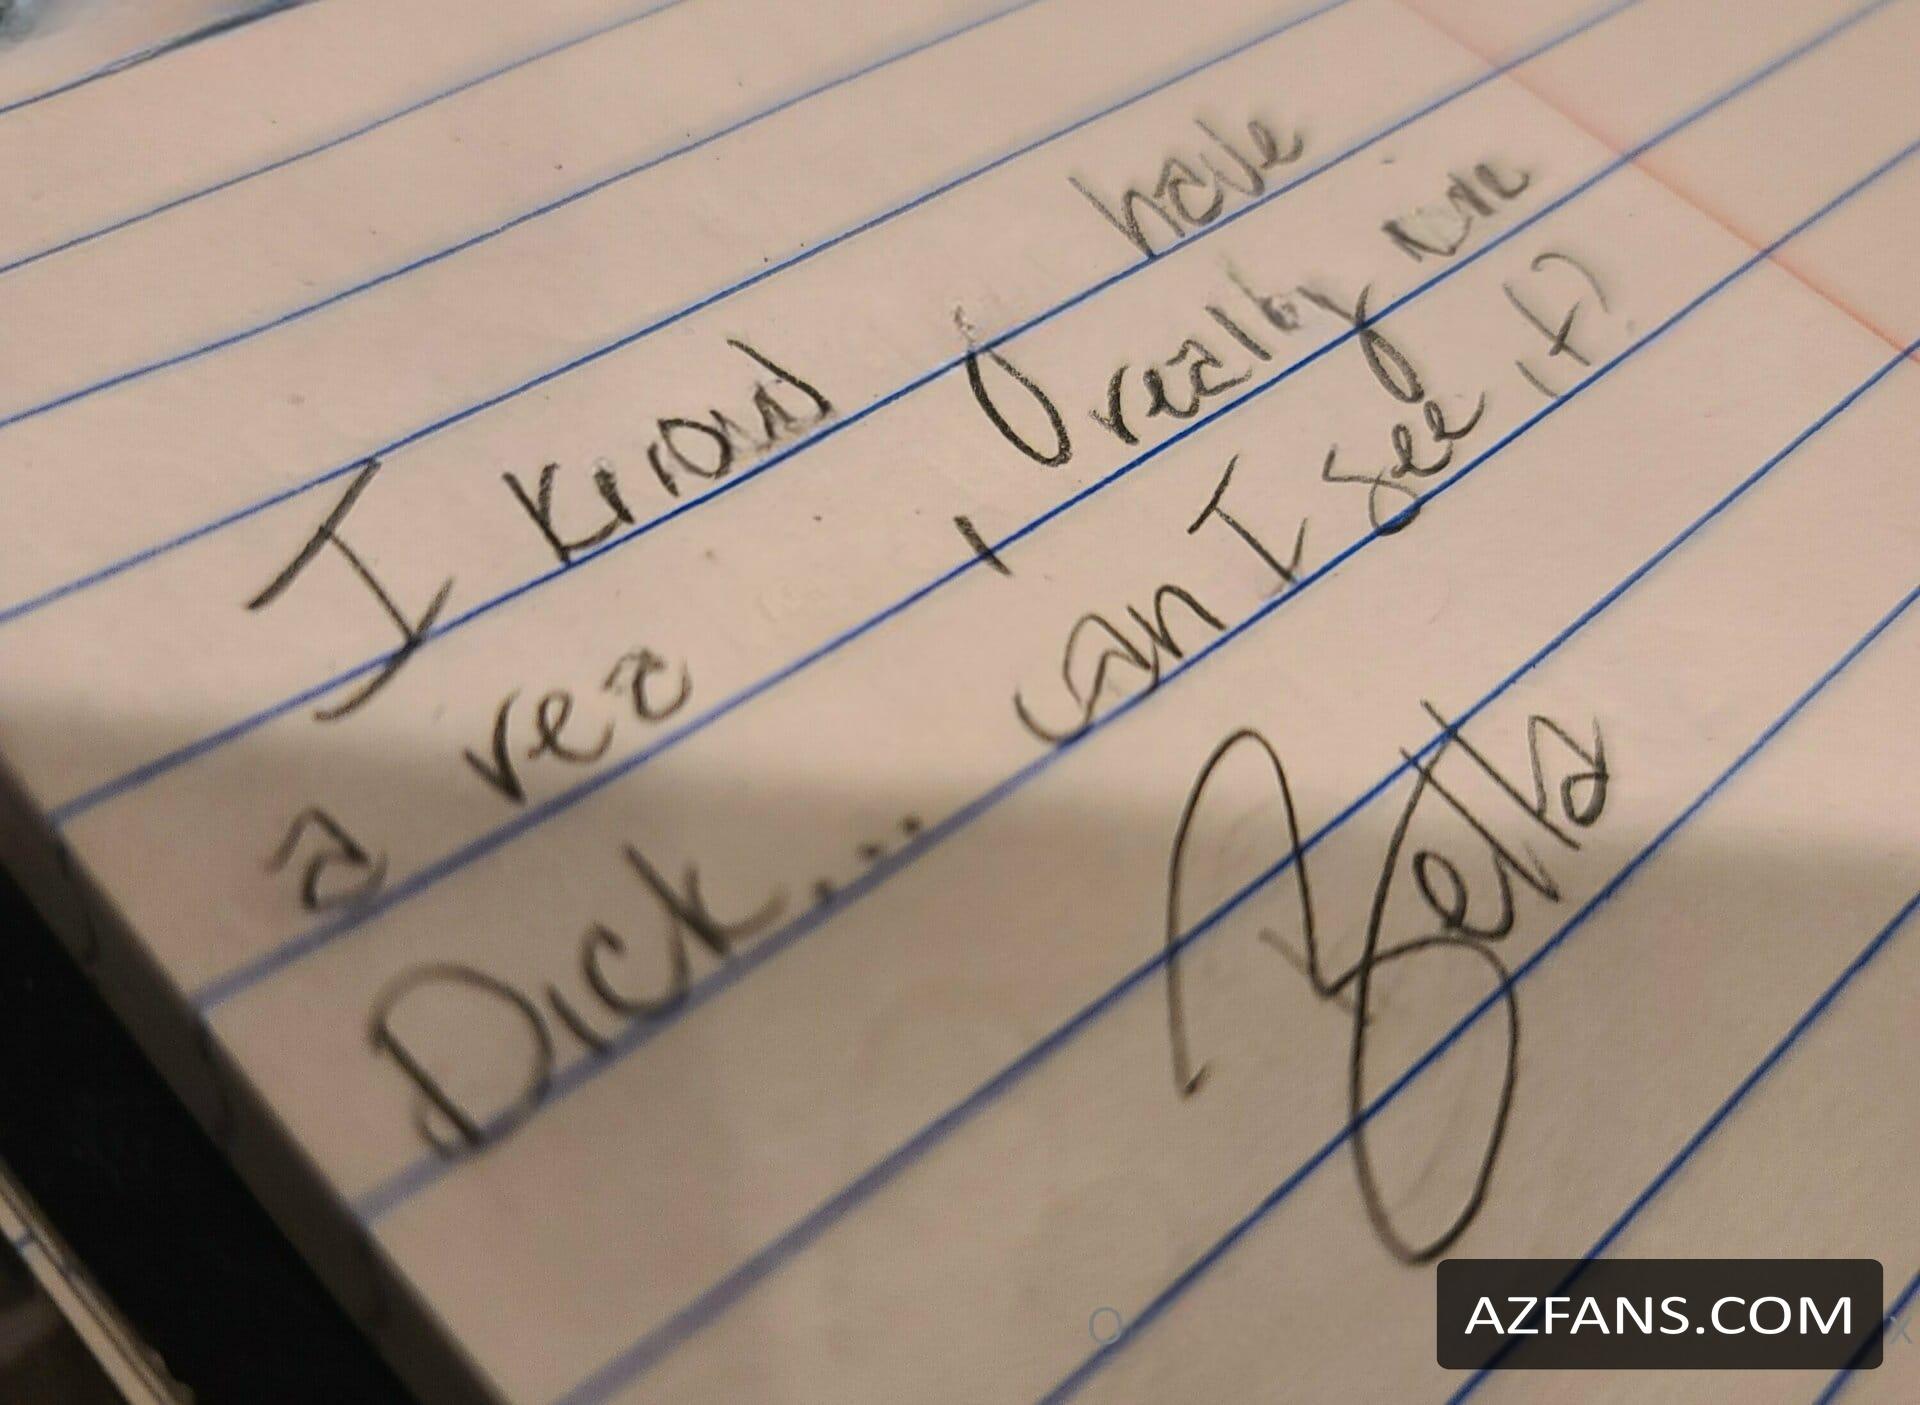 I know U have
a rea l really
Dick... can I see it?
Bella
AZFANS.COM